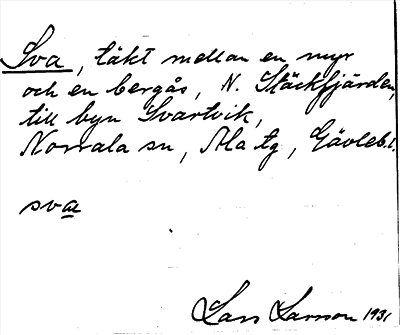 Sva, täkt mellan en myr
och en bergås, N. Stäckfjärden,
till byn Svartvik,
Norrala sn, Ala tg, Gävleb.l.
sva
Lars Larsson 1931